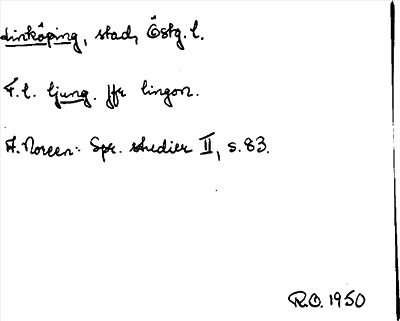 Linköping, stad, Östg. l.
F. l. ljung. jfr lingon.
A. Noreen: Spr. studier II, s. 83.
R.O. 1950